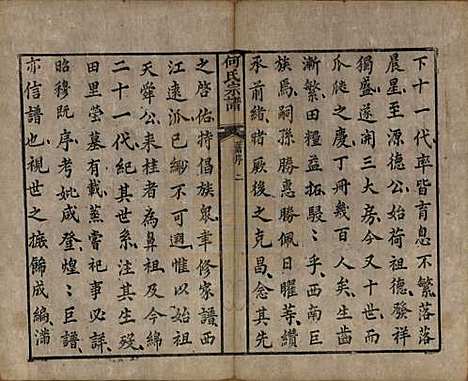 下十一代率皆育息不繁落落
晨星至源德公始荷祖德發祥
獨盛遂開三大房今又十世而
瓜瓞之慶丁冊幾百人矣生齒
漸繁田糧益拓駸〻乎西南巨
族焉嗣孫勝佩日曜等纘
承前緒時厥後之克昌念厥先
何氏宗譜
舊序 二
之啓佑持倡族衆聿修家譜西
江遠派已緲不可遡惟以始遷
天舜公来為鼻祖及今綿
二十一代紀其世系注其生殁
田里塋墓有載蒸嘗祀事必詳
昭穆既序姚咸登煌〻巨譜
亦信譜也視世之摭飾成編滿